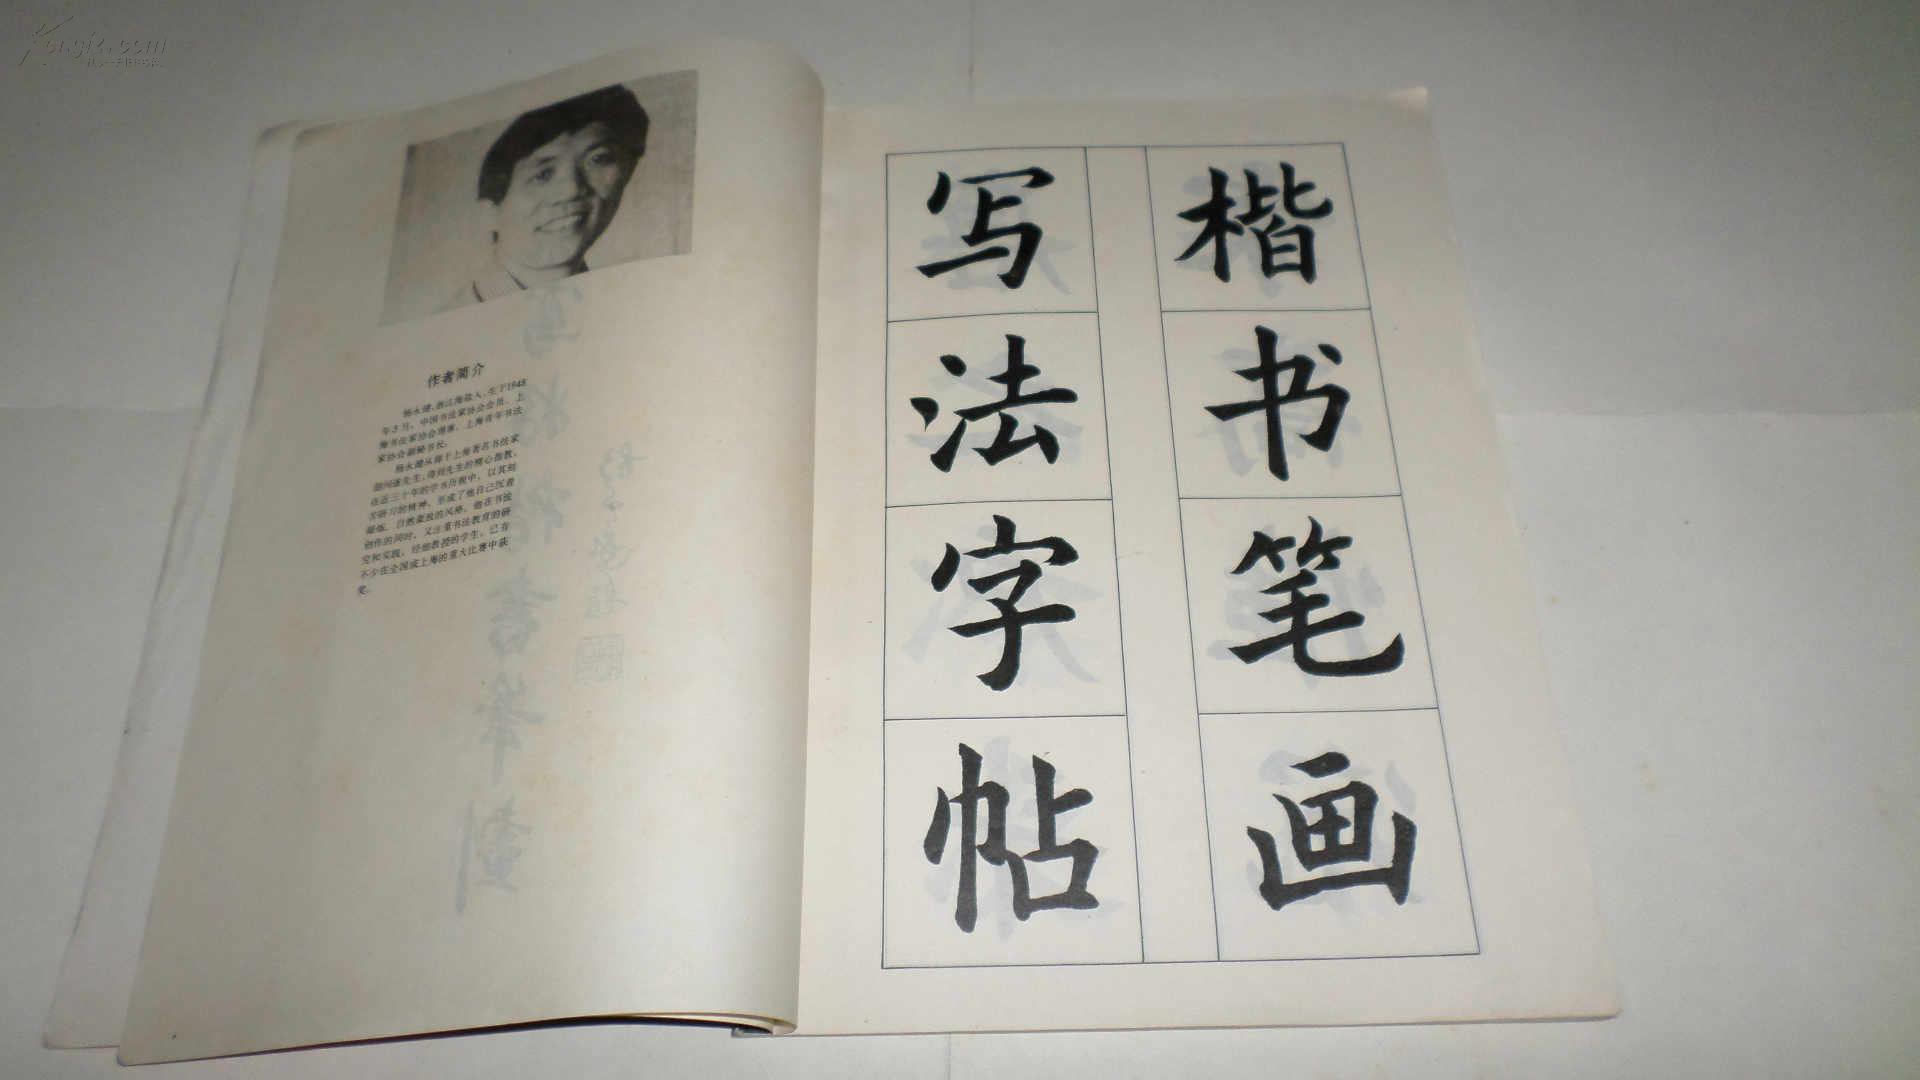 作者简介
杨永健，浙江海盐人，生于1948
年3月，中国书法家协会会员，上
海书法家协会理事，上海青年书法
家协会副秘书长。
杨永健从师于上海著名书法家
胡问遂先生，得到先生的精心指教，
在近三十年的学书历程中，以其刻
苦研习的精神，形成了他自己沉着
凝练，自然豪放的风格。他在书法
创作的同时，又注重书法教育的研
究和实践，经他教授的学生，已有
不少在全国或上海的重大比赛中获
奖。
楷书笔画
写法字帖